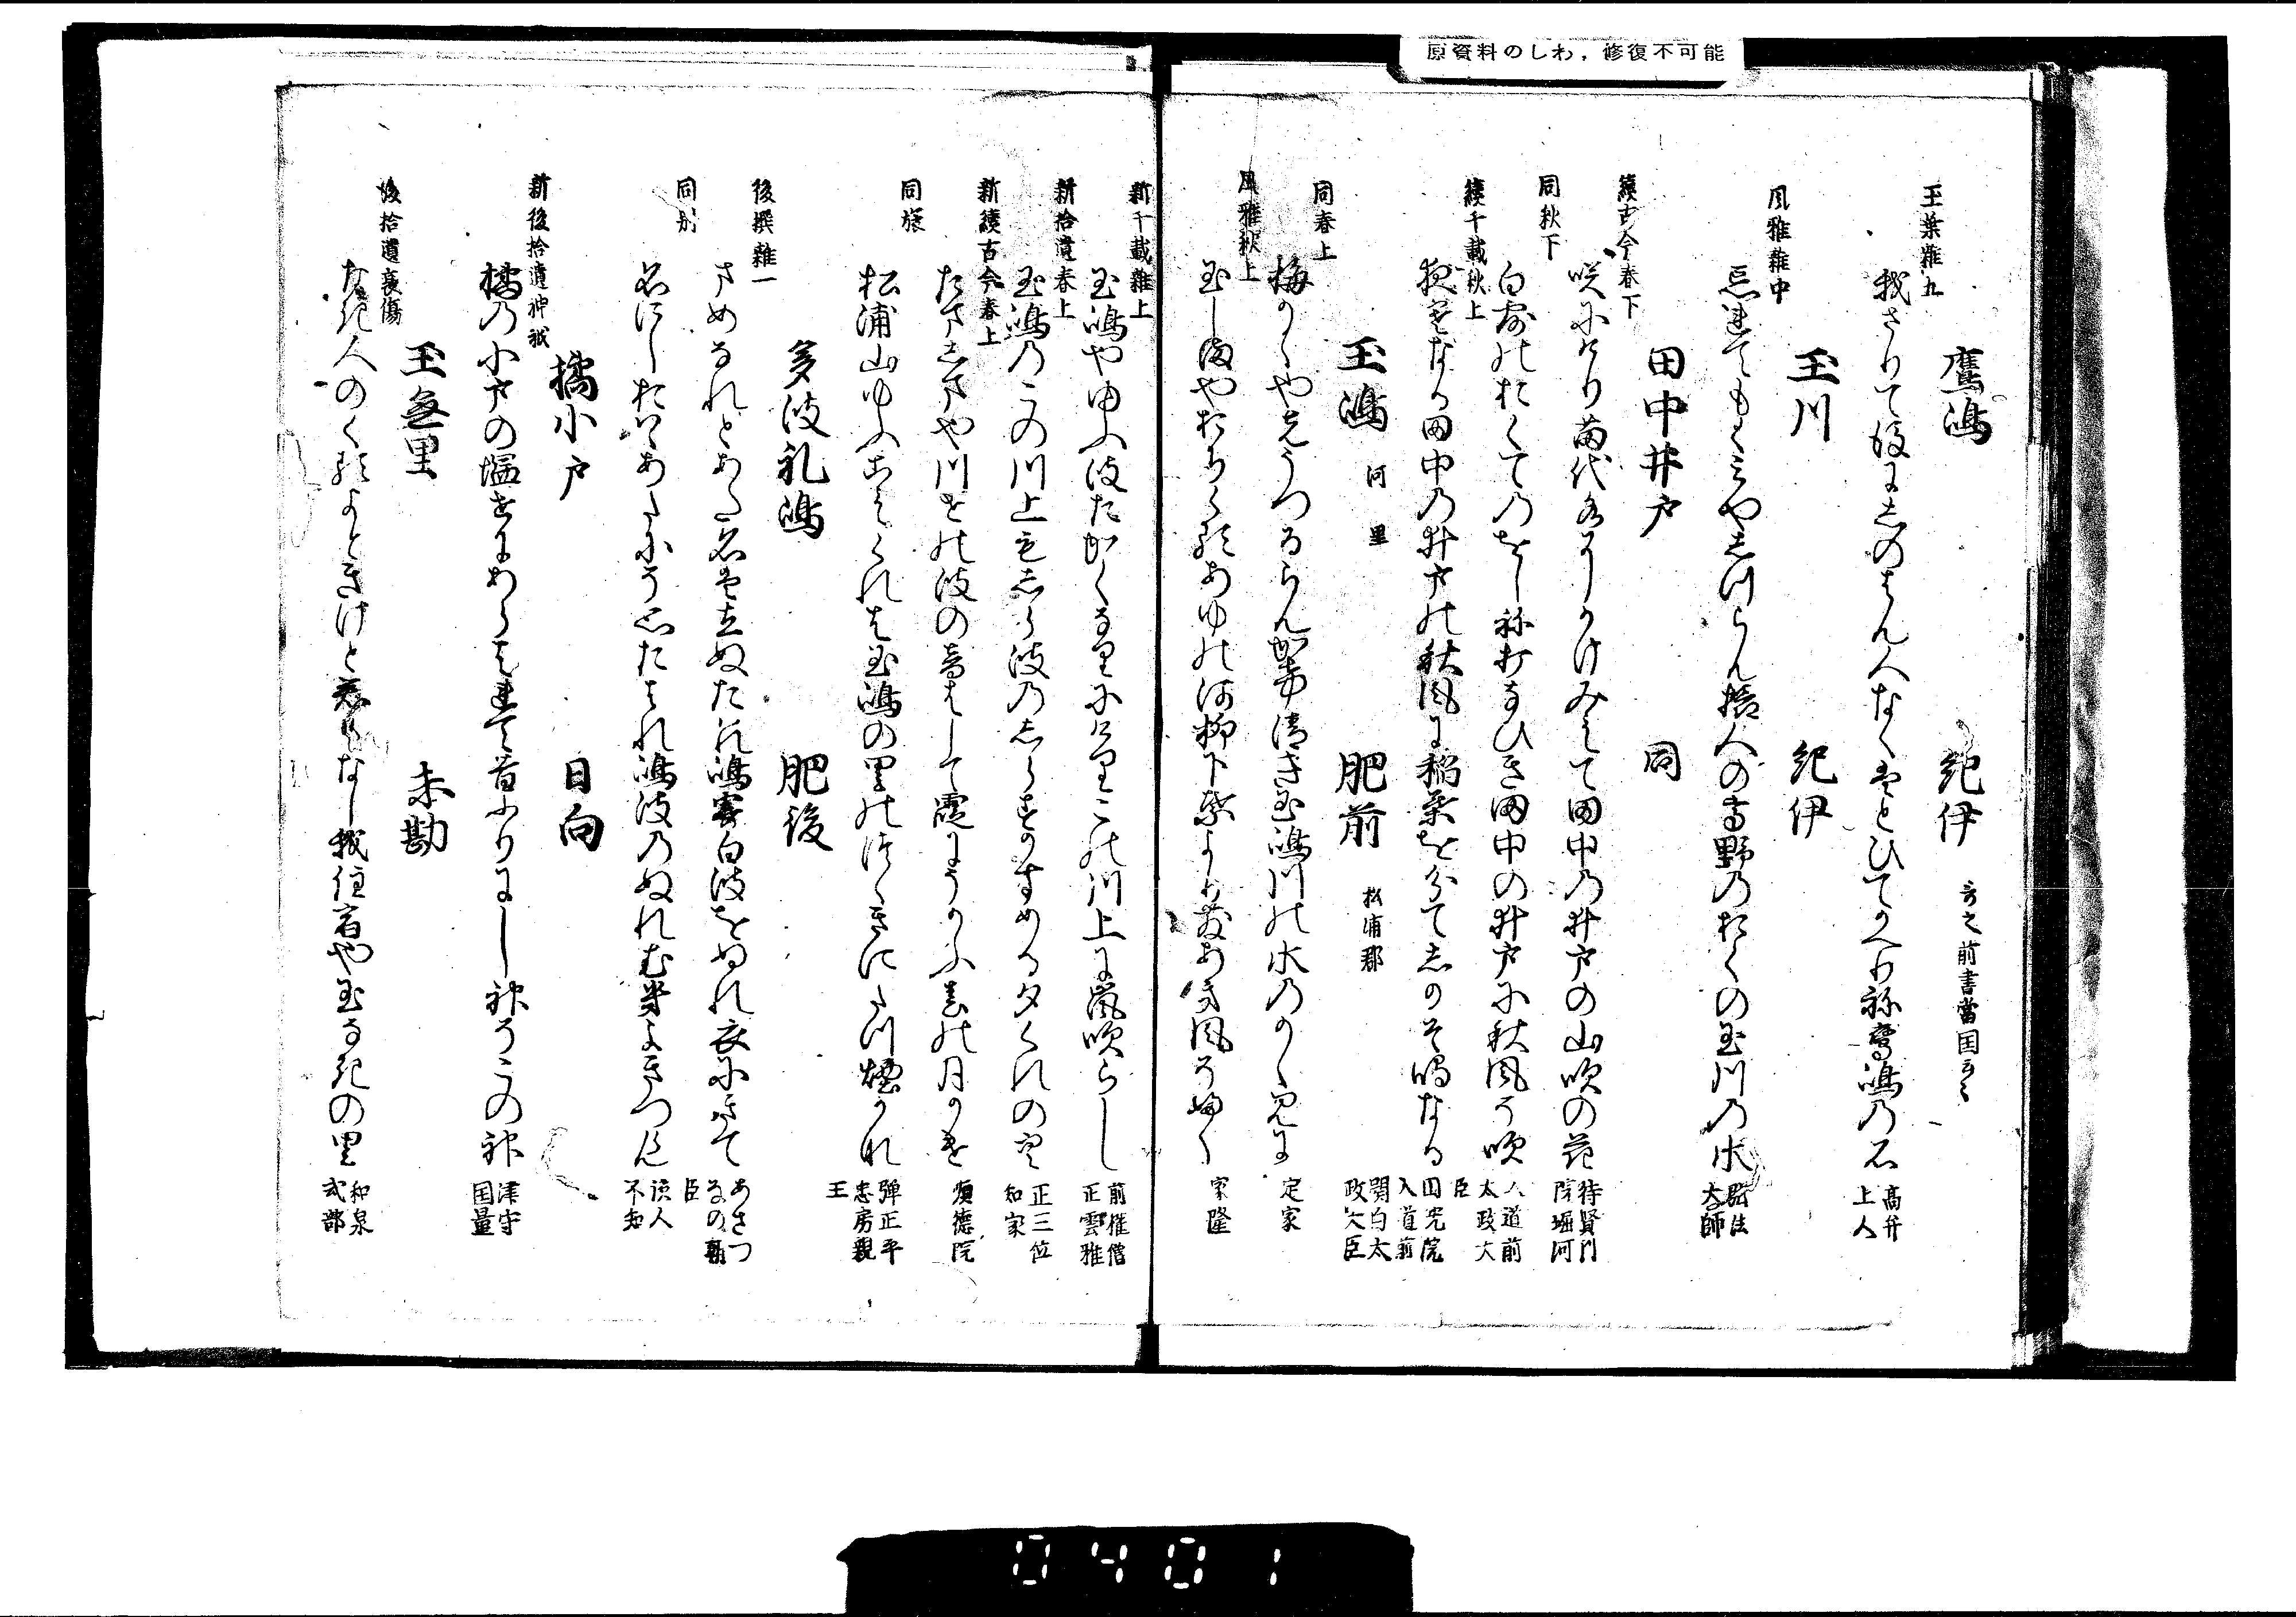 原資料のしわ，修復不可能
鷹嶋　紀伊
玉葉雑五
我さりて後にしのはん人なくはとひてかへりね鷹嶋の石　高弁上人
玉川　紀伊
風雅雑中
忘れてもくみやしつらん旅人の高野のおくの玉川の水　弘法大師
田中井戸　同
続古今春下
咲にけり苗代水にかけみえて田中の井戸の山吹の花　待賢門院堀河
同秋下
白露のおくてのをしね打なひき田中の井戸に秋風そ吹　入道前太政大臣
続千載秋上
田中の井戸の秋風に稲葉を分て　なる　円光院入道前関白太政大臣
玉嶋　河　里　肥前　松浦郡
同春上
梅のかやまつうつるらんかけ清き玉嶋川の水のかゝみに　定家
風雅秋上
玉しまやおちくるあゆの河柳下葉よりちり秋風そ吹　家隆
新千載雑上
玉嶋やゆふ波たかくなりにけりこの川上に嵐吹らし　前権僧正雲雅
新拾遺春上
玉嶋のこの川上もしら波のしらすかすめる夕くれの空　正三位知家
新続古今春上
川せの波の音はして霞にうかふ春の月かけ　順徳院
同旅
松浦山ゆふこえくれは玉嶋の里のつゝきにたつ煙かな　弾正平忠房親王
多波礼嶋　肥後
後撰雑一
さめなれとあたな名は立ぬたはれ嶋よる白波をぬれ衣にきて　あさつなの朝臣
同別
名にしおはゝあたにそ思たはれ嶋波のぬれ　きつらん　読人不知
橘小戸　日向
新後拾遺神祇
橘の小戸の塩せにあらはれて昔ふりにし神そこの神　津守国量
玉無里　未勘
後拾遺哀傷
なき人のくる夜ときけと君もなし我住宿や玉なきの里　和泉式部
0401